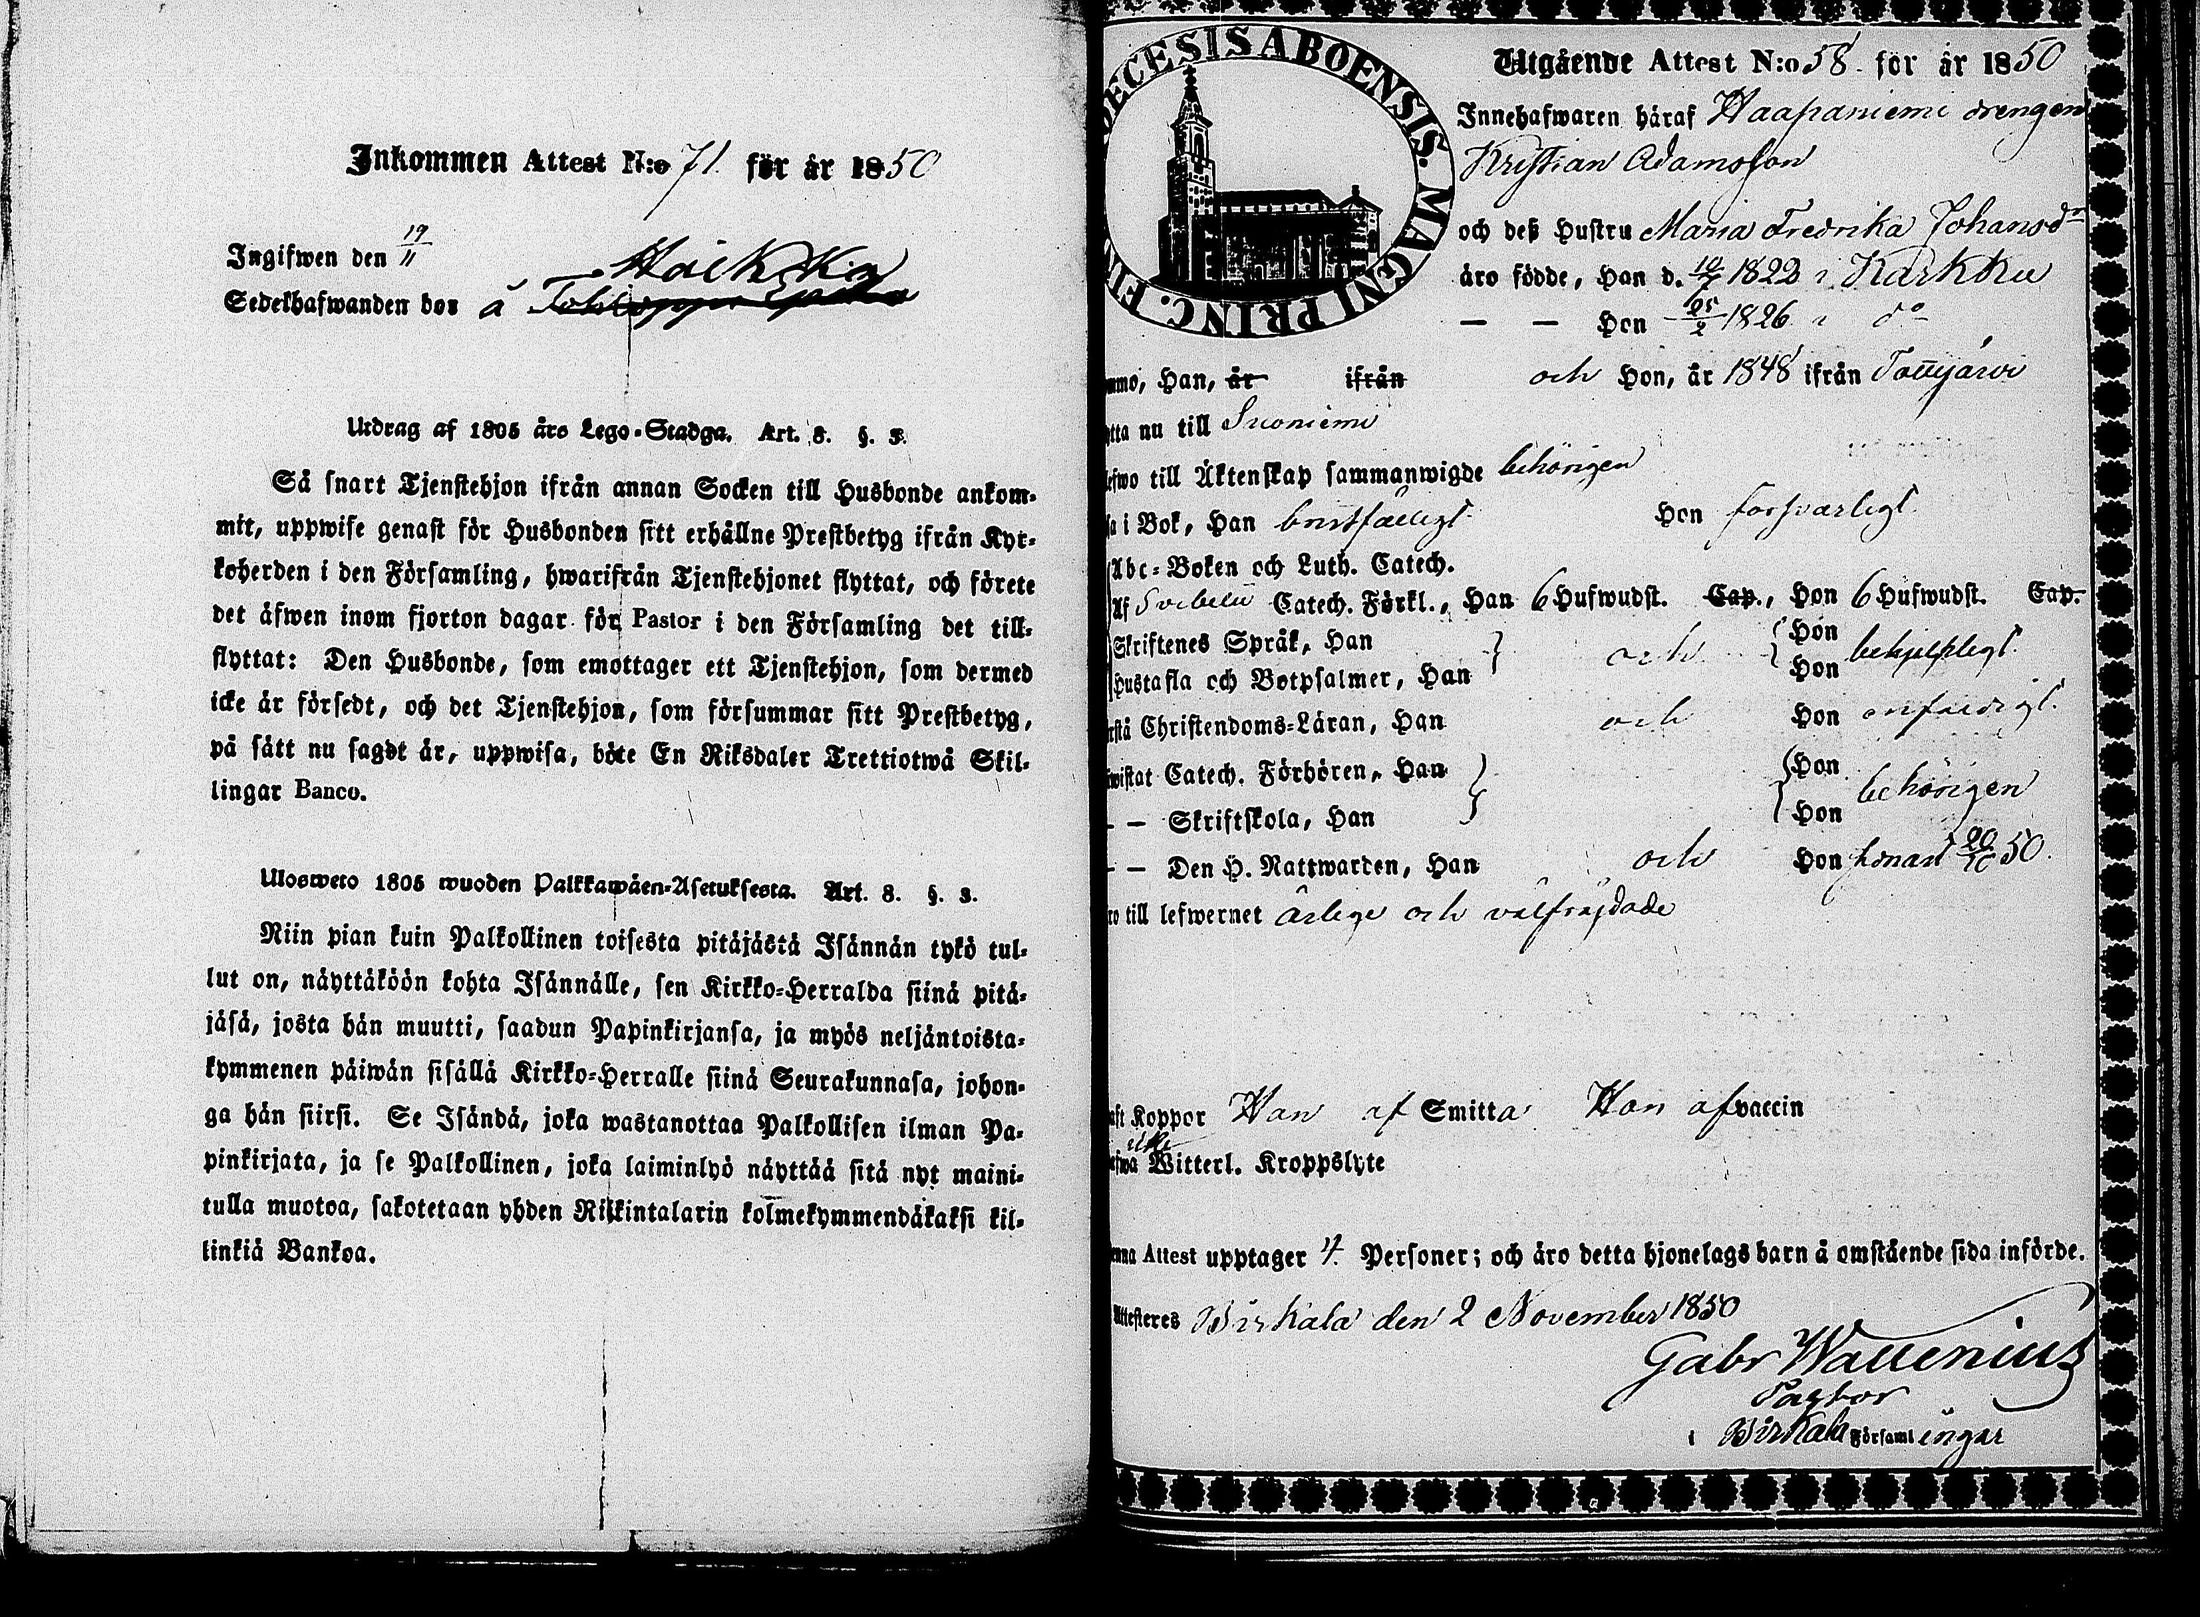 Inkommen Attest N:o 71. för år 1850
Ingifwen den 19/11
Sedelhafwanden bor å
Utdrag af 1805 års Lego-Stadga. Art. 8. §. 3.
Så snart Tjenstehjon ifrån annan Socken till Husbonde ankom-
mit, uppwise genast för Husbonden sitt erhållne Prestbetyg ifrån Kyr-
koherden i den Församling, hwarifrån Tjenstehjonet flyttat, och förete
det äfwen inom fjorton dagar för Pastor i den Församling det till-
flyttat: Den Husbonde, som emottager ett Tjenstehjon, som dermed
icke är försedt, och det Tjenstehjon, som försummar sitt Prestbetyg,
på sätt nu sagdt är, uppwisa, böte En Riksdaler Trettiotwå Skil-
lingar Banco.
Ulosweto 1805 wuoden Palkkawäen-Asetuksesta. Art. 8. §. 3.
Niin pian kuin Palkollinen toisesta pitäjästä Isännän tykö tul-
lut on, näyttäköön kohta Isännälle, sen Kirkko-Herralda siinä pitä-
jäsä, josta hän muutti, saadun Papinkirjansa, ja myös neljäntoista-
kymmenen päiwän sisällä Kirkko-Herralle siinä Seurakunnasa, johon-
ga hän siirsi. Se Isändä, joka wastanottaa Palkollisen ilman Pa-
pinkirjata, ja se Palkollinen, joka laiminlyö näyttää sitä nyt maini-
tulla muotoa, sakotetaan yhden Riikintalarin kolmekymmendäkaksi kil-
linkiä Bankoa.
DECESIS ABOENSIS. MAGNI PRINC. FIN
Utgående Attest N:o 58. för år 1850
Innehafwaren häraf Haapaniemi drengen
Kristian Adamsson
och deß Hustru Maria Fredrika Johansdr
äro födde, Han d. 1822 i Karkku
— — Hon 25/2 1826 i do
mo, Han, år ifrån och Hon, år 1848 ifrån
tta nu till Suoniemi
efwo till Äktenskap sammanwigde behörigen
sa i Bok, Han bristfälligt Hon försvarligt
Abc-Boken och Luth. Catech.
Af Svebelii Catech. Förkl., Han 6 Hufwudst. Cap., Hon 6 Hufwudst. Cap.
Skriftenes Språk, Han } och { Hon behjelpligt
Hustafla och Botpsalmer, Han Hon
rstå Christendoms-Läran, Han och Hon enfaldigt.
wistat Catech. Förhören, Han } { Hon behörigen
— — Skriftskola, Han Hon
— — Den H. Nattwarden, Han och Hon 20/10 50.
ro till lefwernet ärlige och välfräjdade
aft Koppor Han af Smitta Hon af vaccin
efwa icke Witterl. Kroppslyte
enna Attest upptager 4. Personer; och äro detta hjonelags barn å omstående sida införde.
Attesteres Birkala den 2 November 1850
Gabr Wallenius
Pastor
i Birkala Församlingar